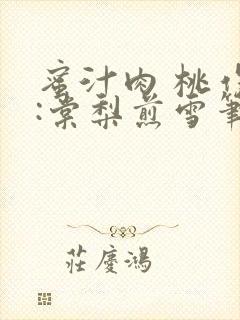 蜜汁肉桃
:棠梨煎雪筆
莊慶鴻